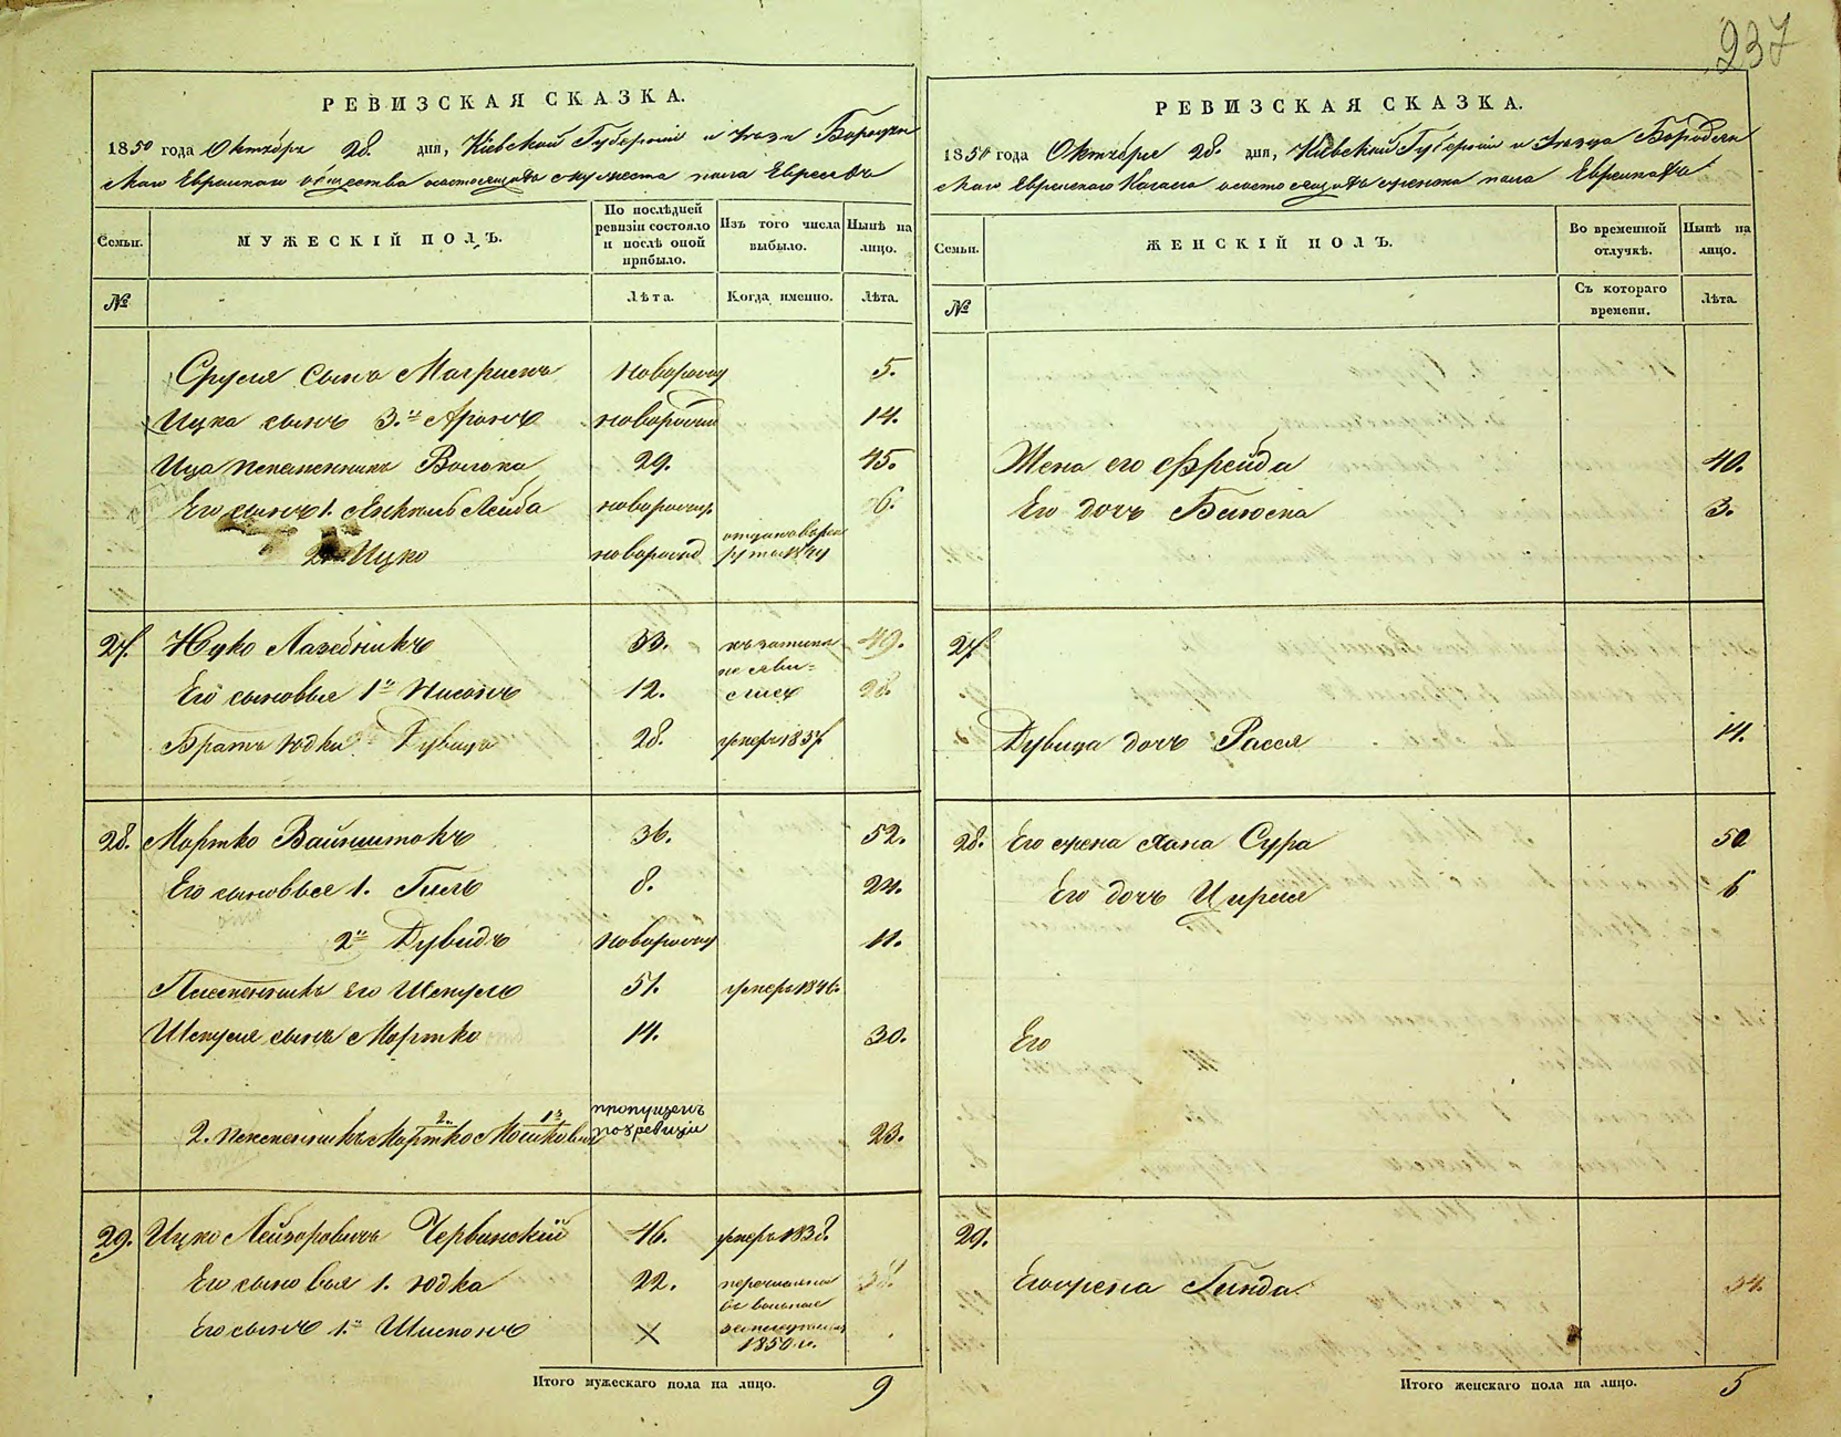 237
РЕВИЗСКАЯ СКАЗКА.
1850 года Октября 28. дня, Кіевской Губерніи и Уѣзда Бородян
скаго Еврейскаго общества о состоящихъ мужеска пола Евреевъ
Семьи.
МУЖЕСКІЙ ПОЛЪ.
По послѣдней ревизіи состояло и послѣ оной прибыло.
Изъ того числа выбыло.
Нынѣ на лицо.
№
Лѣта.
Когда именно.
Лѣта.
Сруля сынъ новорожд 5.
Ицка сынъ 3.й Аронъ новорожд 14.
Ица племенникъ Волька 29. 45.
Его сынъ 1. Янкель Лейба новорожд 6.
2. Ицко новорожд
27. Лазебникъ 33. 49.
Его сыновья 1й Нисонъ 12. 28.
Братъ Юдки Дувидъ 28. умеръ 1837
28. Мортко Вайнштокъ 36. 52.
Его сыновья 1. Гиль 8. 24.
2й Дувидъ новорожд 11.
Племенникъ его Шепсель 51. умеръ 1846.
Шепселя сынъ Мортко 14. 30.
2. племенникъ Мортко Мошковъ пропущенъ по ревизіи 23.
29. Ицко Лейзоровичъ Червинскій 46. умеръ 1838
Его сыновья 1. Юдка 22. перечисленъ 38.
въ вольные
Его сынъ 1й Шимонъ × 1850 г.
Итого мужескаго пола на лицо. 9
РЕВИЗСКАЯ СКАЗКА.
1850 года Октября 28. дня, Кіевской Губерніи и Уѣзда Бородян
скаго Еврейскаго Кагала о состоящихъ женска пола Евреекъ
Семьи.
ЖЕНСКІЙ ПОЛЪ.
Во временной отлучкѣ.
Нынѣ на лицо.
№
Съ котораго времени.
Лѣта.
Жена его Фрейда 40.
Его дочь 3.
27.
Дувида дочь Рася 14.
28. Его жена Хана Сура 50
Его дочь Цирля 6
Его
29.
Его жена Гинда 34.
Итого женскаго пола на лицо. 5